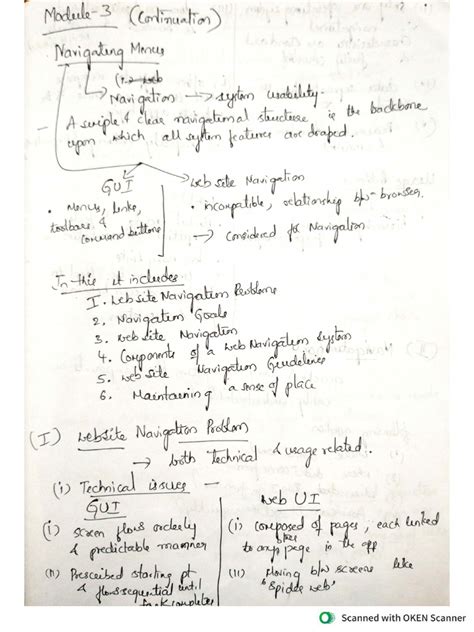 Module-3 (Continuation)
Navigating Menus
Navigation → system usability.
- A simple & clear navigational structure is the backbone
upon which all system features are draped.
GUI
• Menus, links,
toolbars &
command buttons
→ web site Navigation
• incompatible, relationship b/w browser
→ Considered for Navigation
In this it includes
I. web site Navigation Problems
2. Navigation Goals
3. web site Navigation
4. Components of a web Navigation system
5. web site Navigation Guidelines
6. Maintaining a sense of place
(I) website Navigation Problem
→ both Technical & usage related.
(i) Technical issues -
GUI
(i) screen flows orderly
& predictable manner
(ii) Prescribed starting pt
& flow sequential until
task completes
web UI
(i) composed of pages, each linked
to any page in the app
(ii) Moving b/w screens like
"Spider web"
Scanned with OKEN Scanner